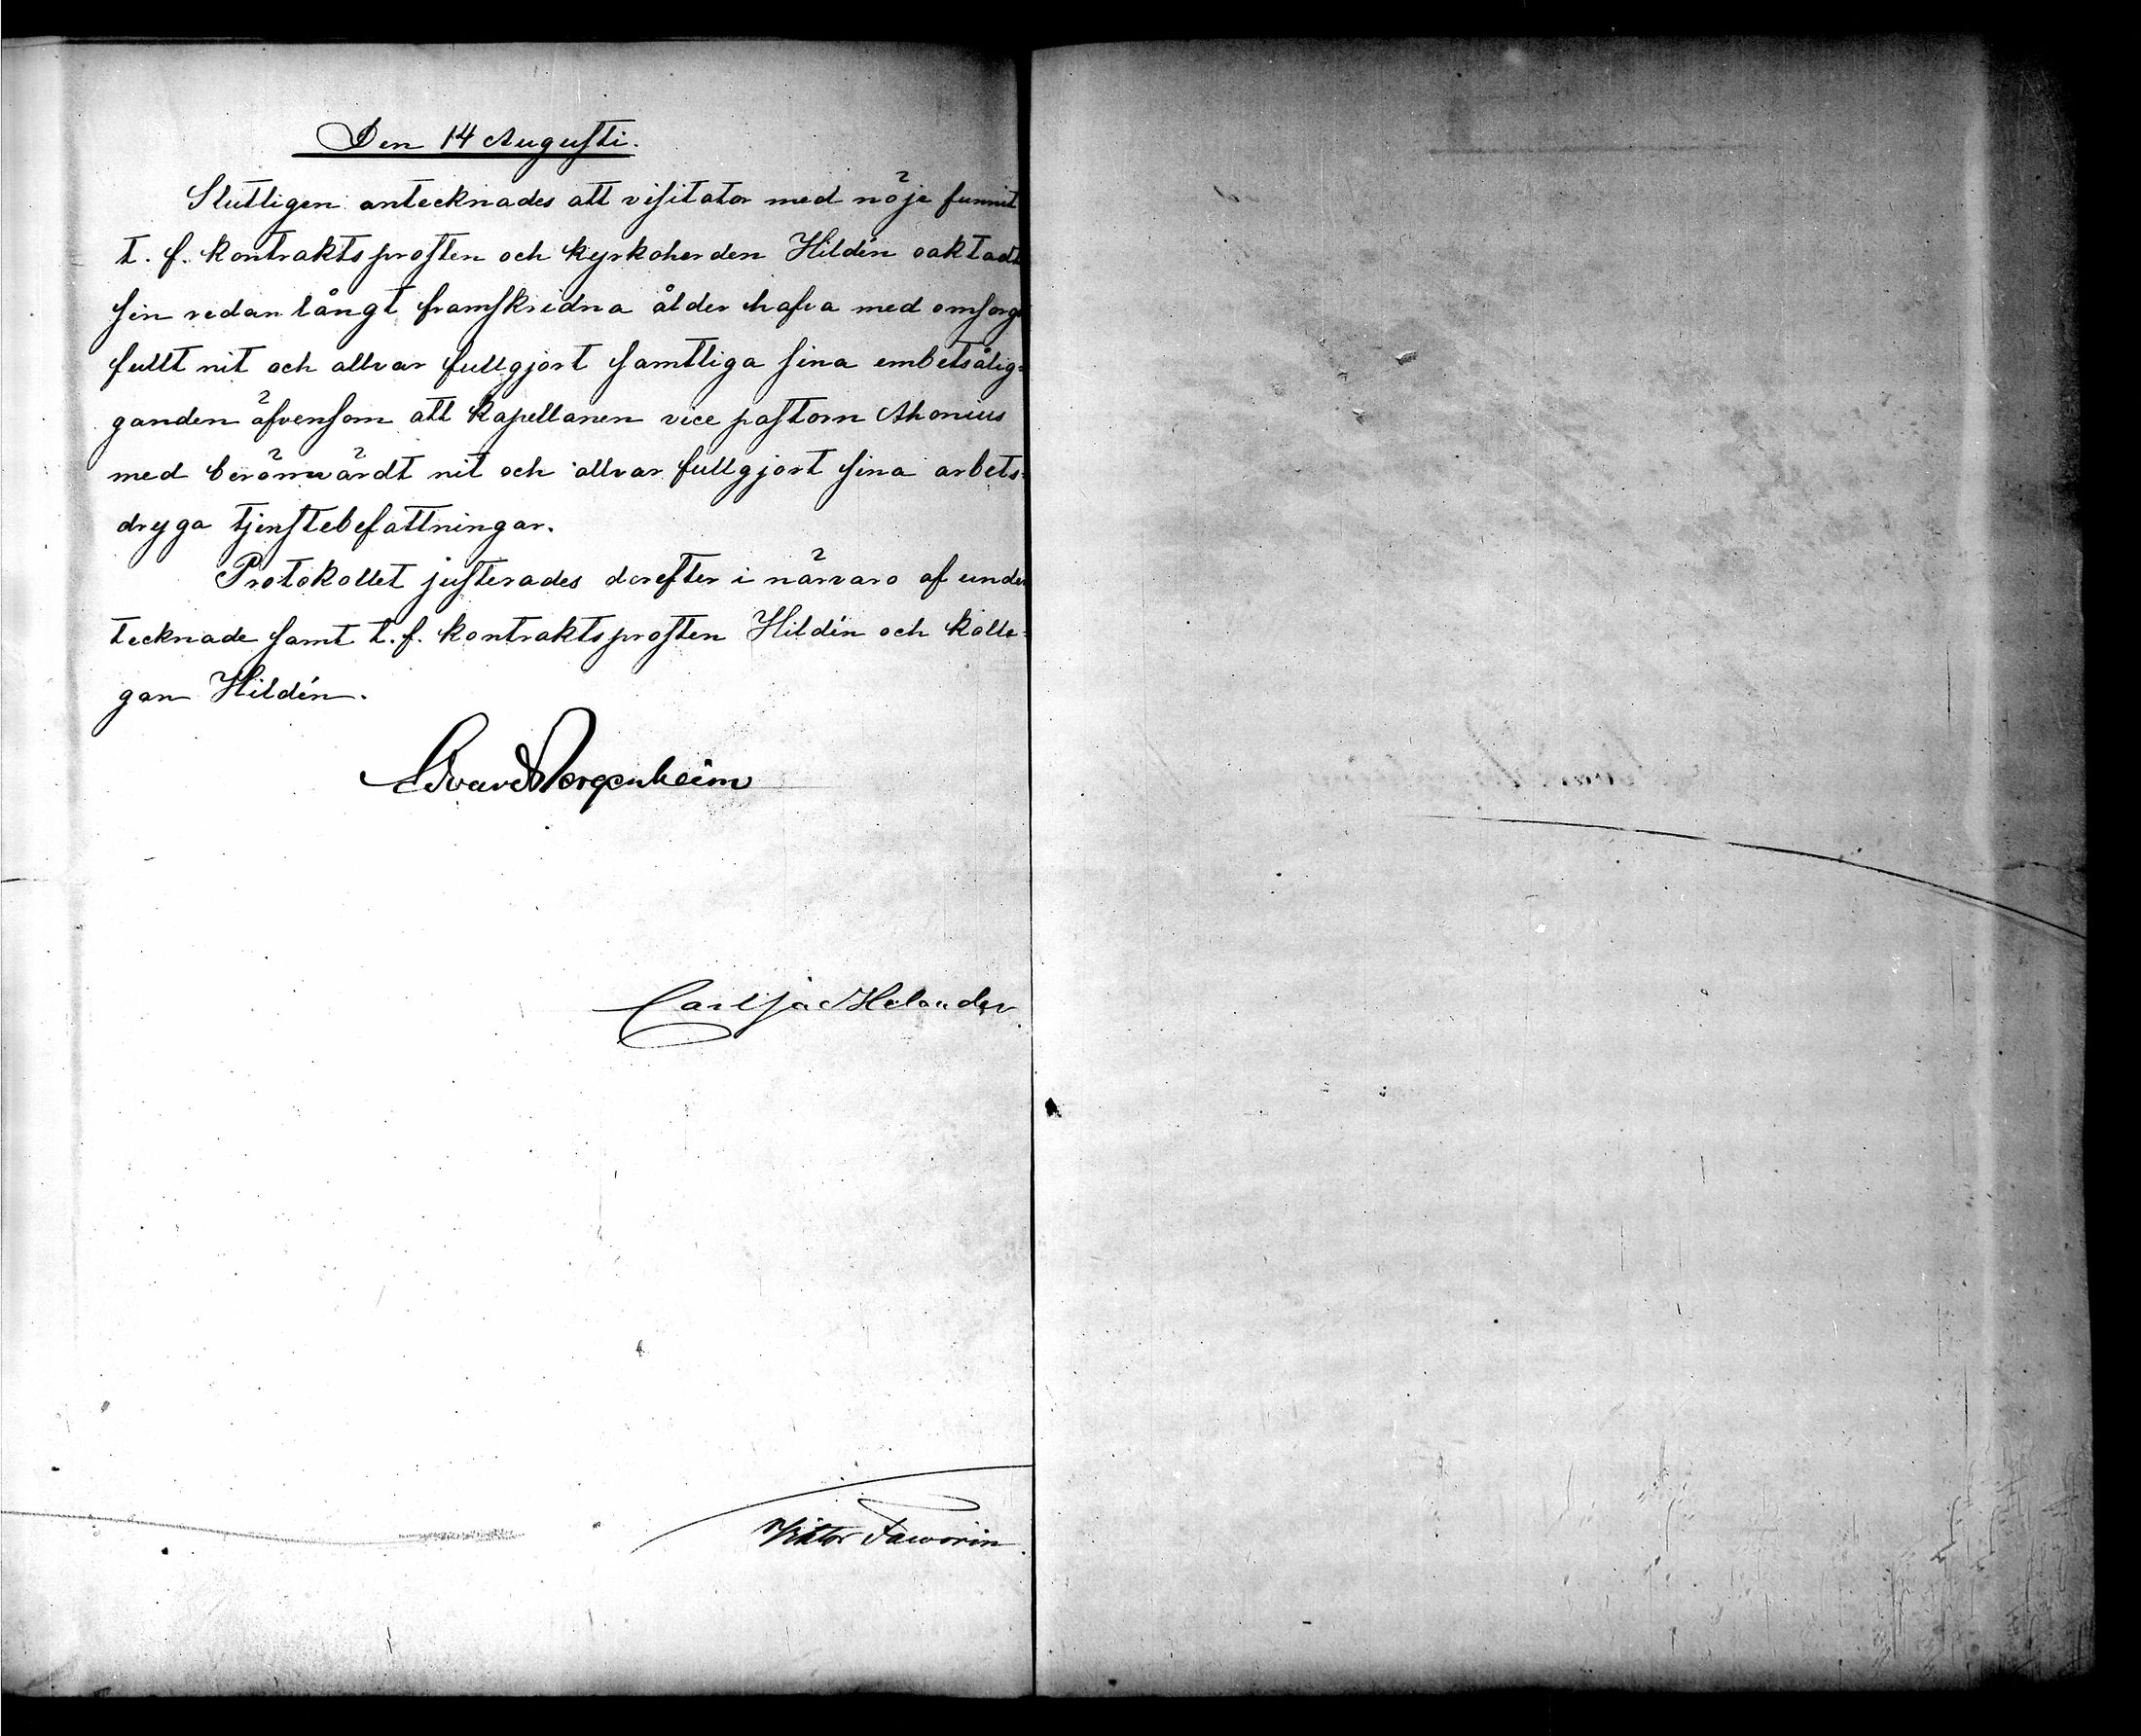 Den 14 Augusti.
Slutligen antecknades att visitator med nöje funnit
t. f. kontraktsprosten och kyrkoherden Hildén oaktadt
sin redan långt framskridna ålder hafva med omsorgs
fullt nit och allvar fullgjort samtliga sina embetsålig=
ganden äfvensom att kapellanen vice pastorn Ahonius
med berömvärdt nit och allvar fullgjort sina arbets=
dryga tjenstebefattningar.
Protokollet justerades derefter i närvaro af under
tecknade samt t.f. kontraktsprosten Hildén och kolle=
gan Hildén.
Edvard Bergenheim
Carl Jac Helander
Viktor Faworin.